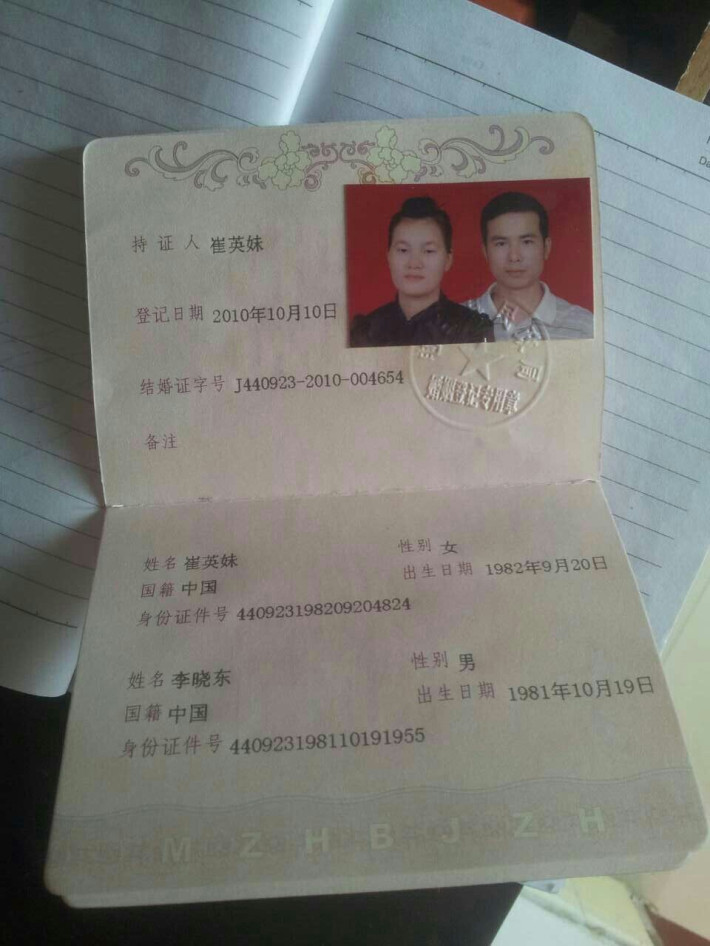 持证人 崔英妹
登记日期 2010年10月10日
结婚证字号 J440923-2010-004654
备注
婚姻登记专用章
姓名 崔英妹 性别 女
国籍 中国 出生日期 1982年9月20日
身份证件号 440923198209204824
姓名 李晓东 性别 男
国籍 中国 出生日期 1981年10月19日
身份证件号 440923198110191955
MZHBJZH